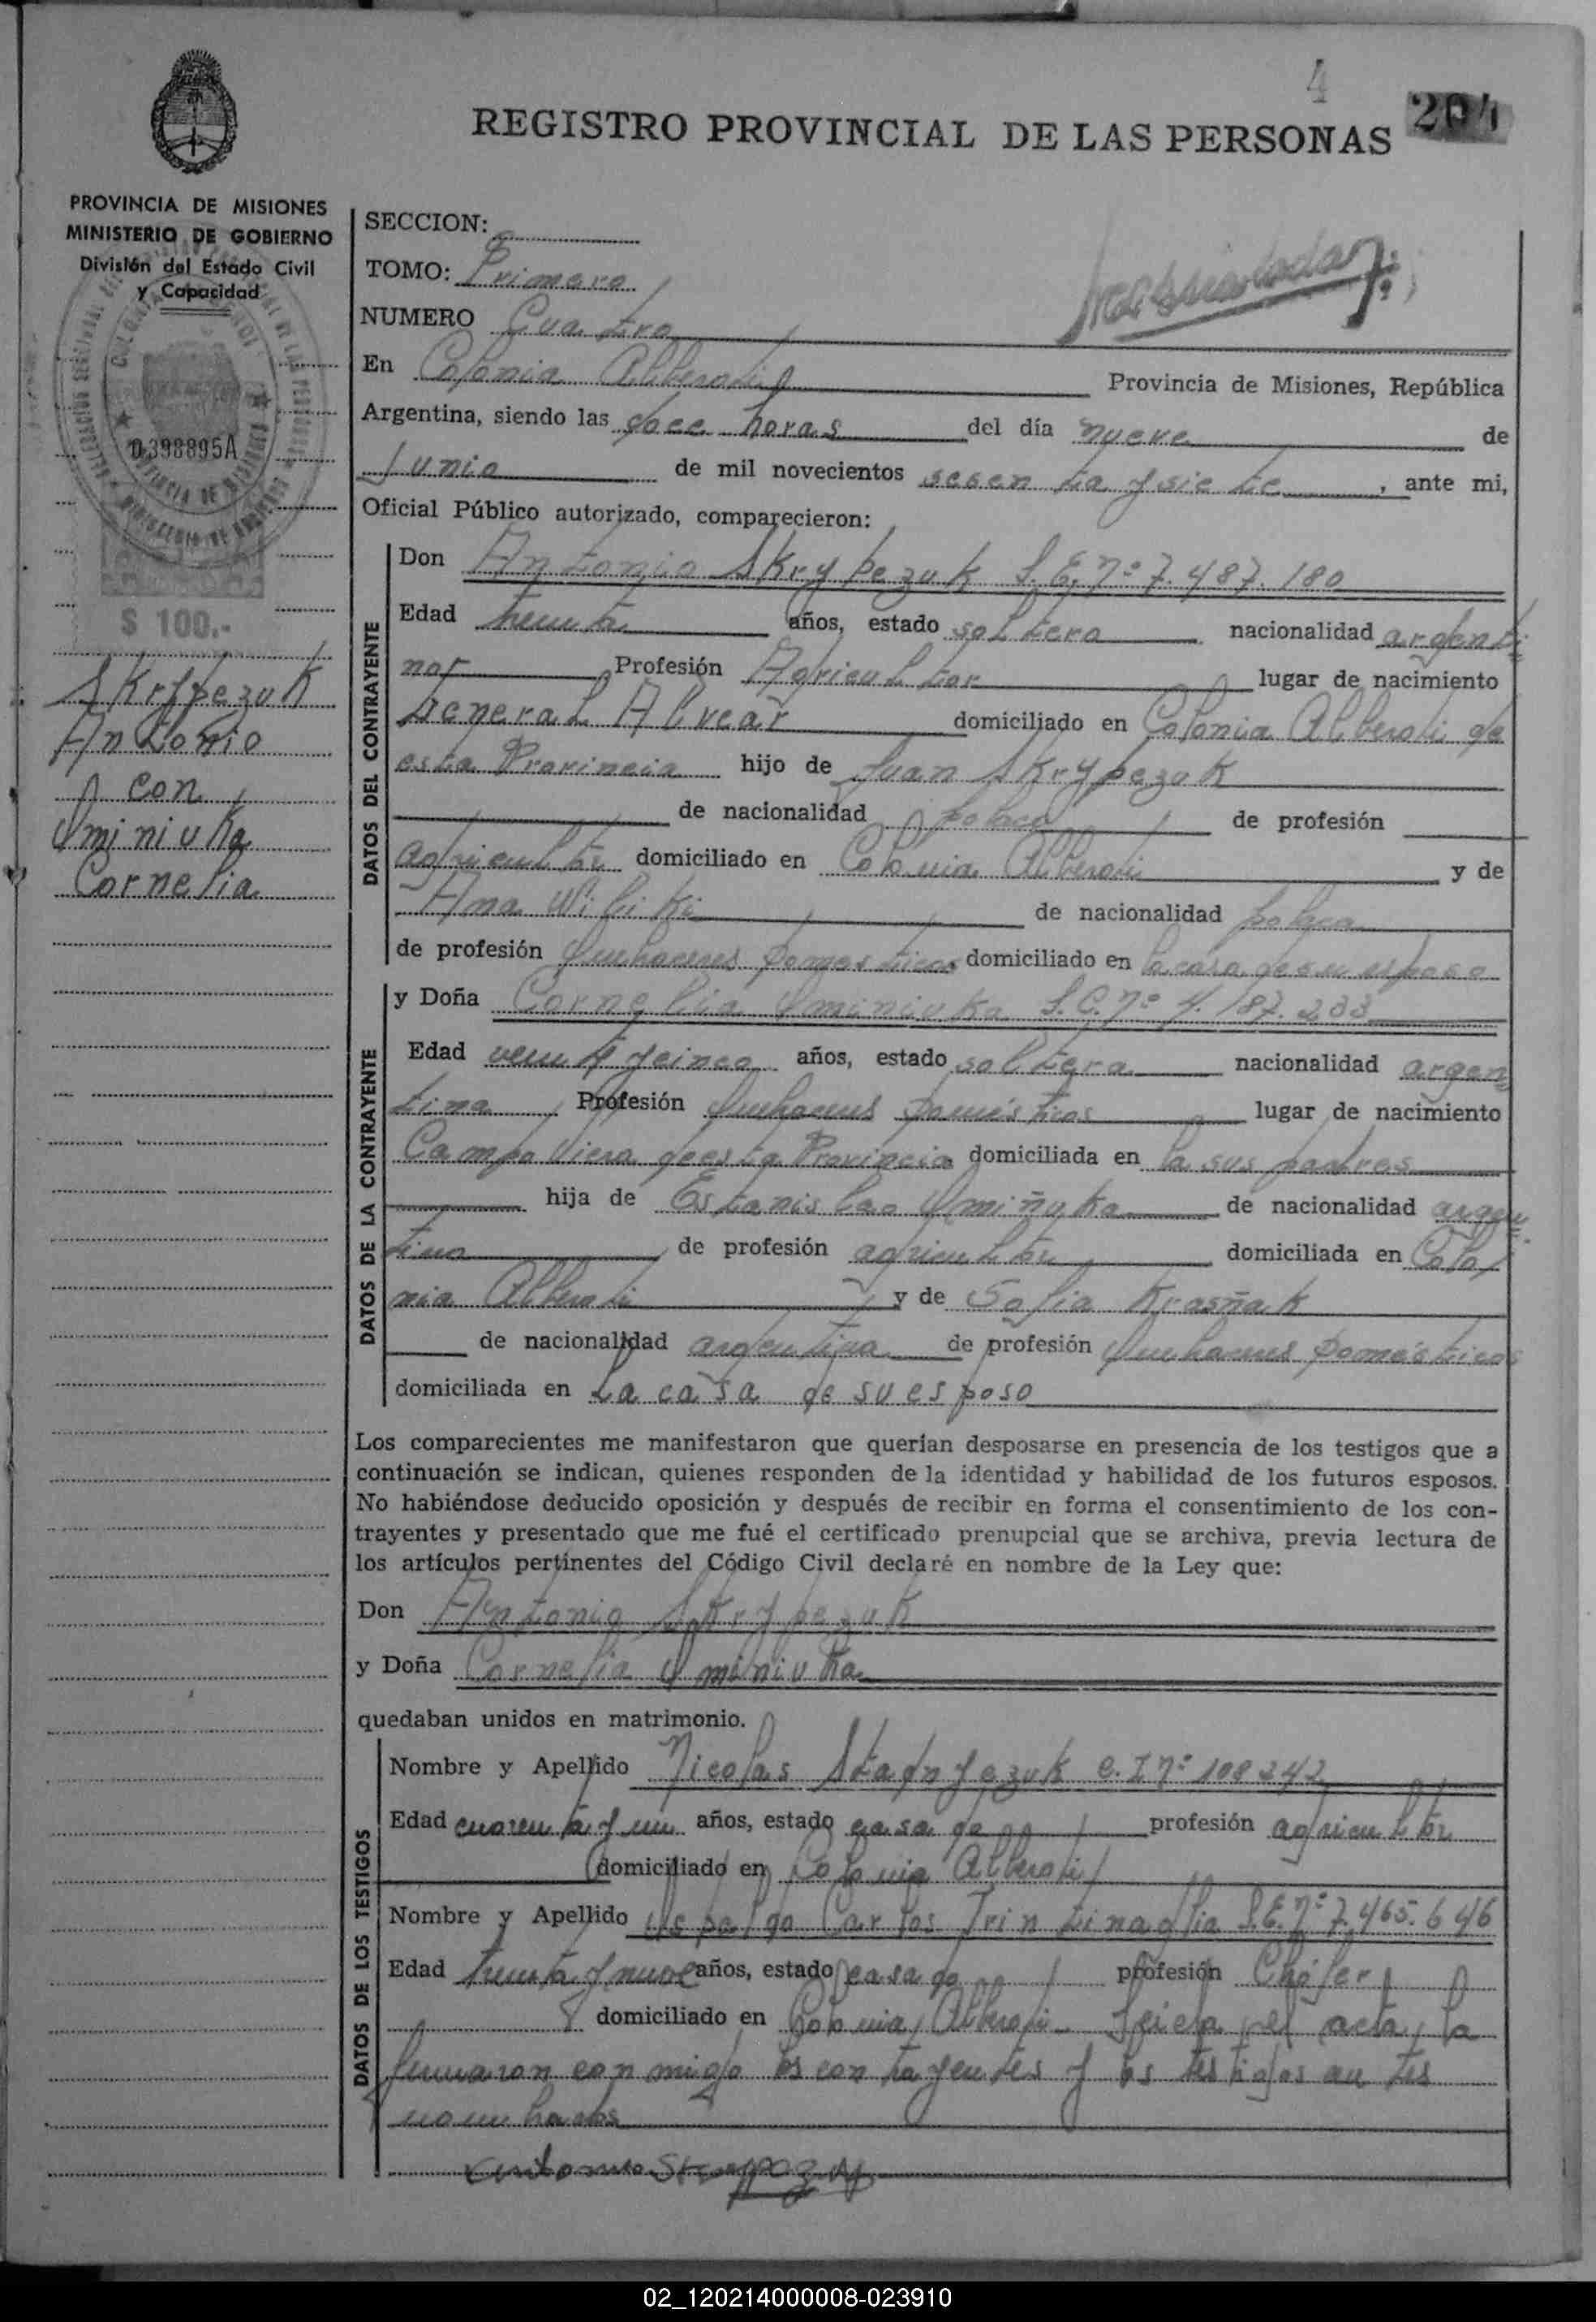 4
204
REGISTRO PROVINCIAL DE LAS PERSONAS
PROVINCIA DE MISIONES
MINISTERIO DE GOBIERNO
División del Estado Civil
y Capacidad
0398895A
$ 100.-
Skrypezuk
Antonio
con
Cornelia
SECCION:
TOMO: Primero
NUMERO Cuatro
En Colonia Alberdi Provincia de Misiones, República
Argentina, siendo las doce horas del día nueve de
Junio de mil novecientos sesenta y siete, ante mi,
Oficial Público autorizado, comparecieron:
DATOS DEL CONTRAYENTE
Don Antonio Skrypezuk L.E. nº 7.487.180
Edad treinta años, estado soltero nacionalidad argenti
no Profesión Agricultor lugar de nacimiento
General Alvear domiciliado en Colonia Alberdi de
esta Provincia hijo de Juan Skrypezuk
de nacionalidad polaco de profesión
agricultor domiciliado en Colonia Alberdi y de
Ana de nacionalidad polaca
de profesión quehaceres domesticos domiciliado en la casa de su esposo
DATOS DE LA CONTRAYENTE
y Doña Cornelia L.C. nº 4.187.233
Edad veinti y cinco años, estado soltera nacionalidad argen
tina Profesión quehaceres domésticos lugar de nacimiento
Campo Viera de esta Provincia domiciliada en la sus padres
hija de Estanislao de nacionalidad argen
tino de profesión agricultor domiciliada en Colo
nia Alberdi y de Sofia Krasñak
de nacionalidad argentina de profesión quehaceres domésticos
domiciliada en La casa de su esposo
Los comparecientes me manifestaron que querían desposarse en presencia de los testigos que a
continuación se indican, quienes responden de la identidad y habilidad de los futuros esposos.
No habiéndose deducido oposición y después de recibir en forma el consentimiento de los con-
trayentes y presentado que me fué el certificado prenupcial que se archiva, previa lectura de
los artículos pertinentes del Código Civil declaré en nombre de la Ley que:
Don Antonio Skrypezuk
y Doña Cornelia
quedaban unidos en matrimonio.
DATOS DE LOS TESTIGOS
Nombre y Apellido Nicolas Stadnyezuk C.I. nº 108242
Edad cuarenta y un años, estado casado profesión agricultor
domiciliado en Colonia Alberdi
Nombre y Apellido Carlos Trintinaglia L.E. nº 7.465.646
Edad treinta y nueve años, estado casado profesión Chófer
domiciliado en Colonia Alberdi Leida el acta, la
firmaron conmigo los contrayentes y los testigos antes
nombrados
02_120214000008-023910